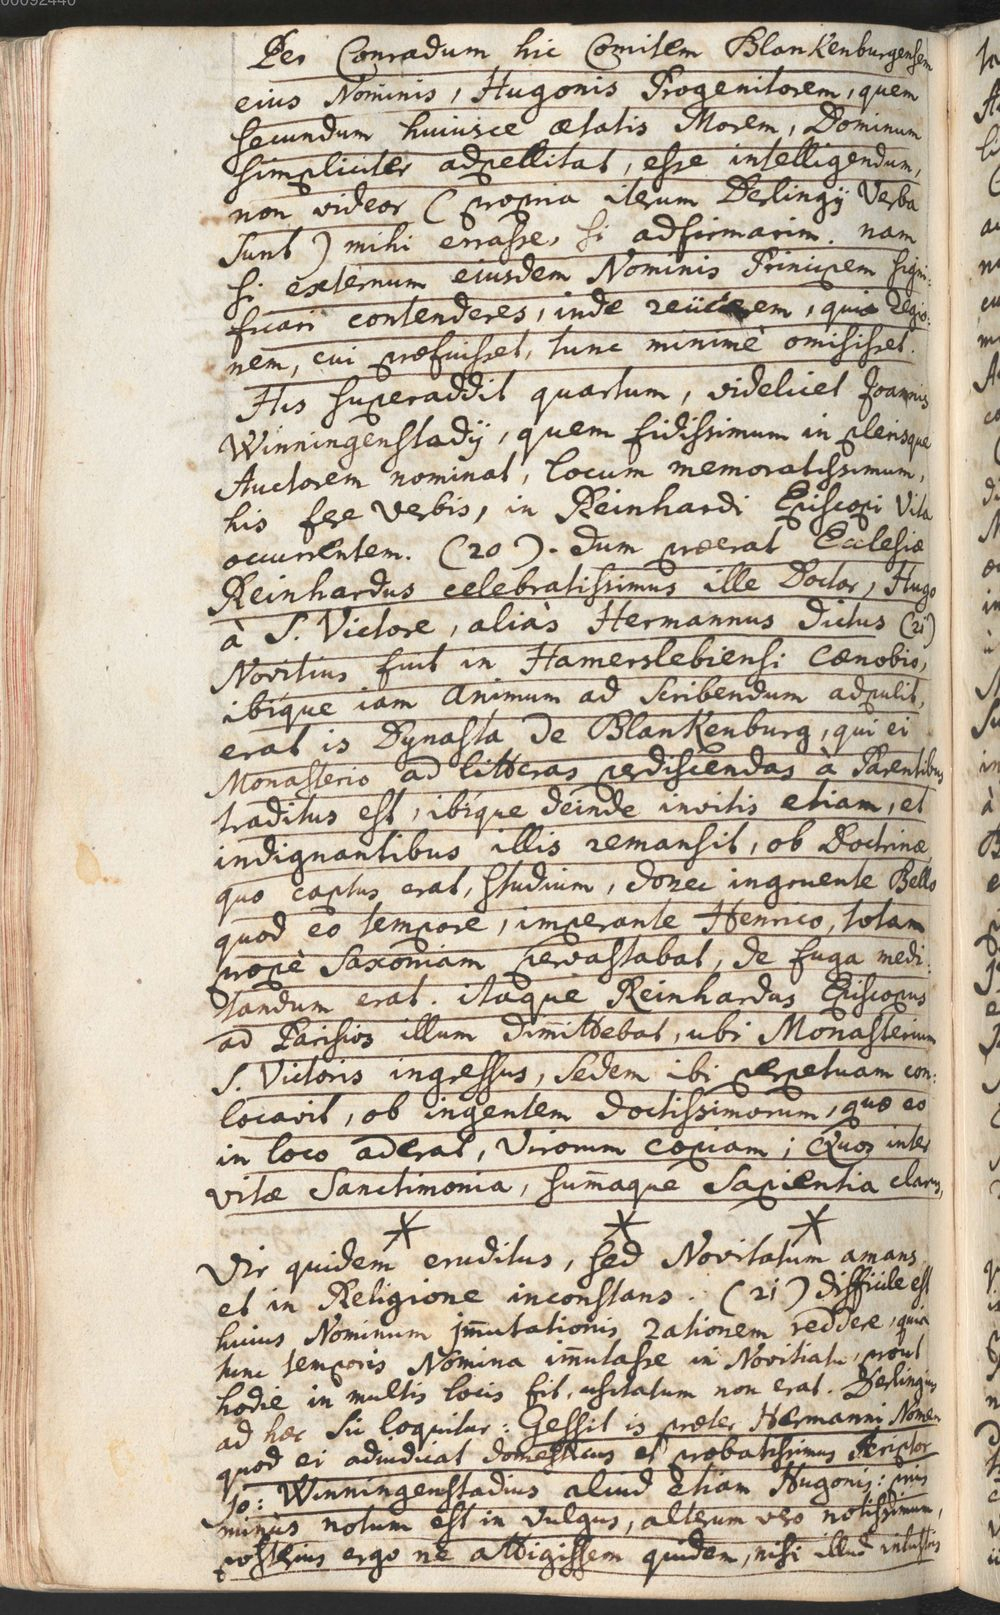 00092440
Per Conradum hic Comitem Blankenburgensem
eius Nominis, Hugonis Progenitorem, quem
secundum huiusce ætatis Morem, Dominum
simpliciter adpellitat, esse intelligendum,
non videor (propria iterum Derlingij Verba
sunt) mihi errasse, si adfirmarim. nam
si externum eiusdem Nominis Principem signi:
ficari contenderes, inde reiicerem, quia Regio:
nem, cui præfuisset, tunc minimè omisisset.
His superaddit quartum, videlicet Joannis
Winningenstadij, quem fidissimum in plerisque
Auctorem nominat, locum memoratissimum,
his fere verbis, in Reinhardi Episcopi Vita
occurrentem. (20). dum præerat Ecclesiæ
Reinhardus celebratissimus ille Doctor, Hugo
à S. Victore, aliàs Hermannus dictus (21)
Novitius fuit in Hamerslebiensi Cænobio,
ibíque iam animum ad scribendum adpulit,
erat is Dynasta de Blankenburg, qui ei
Monasterio ad litteras perdiscendas à Parentibus
traditus est, ibíque deinde invitis etiam, et
indignantibus illis remansit, ob Doctrinæ,
quo captus erat, studium, donec ingruente Bello
quod eo tempore, imperante Henrico, totam
propè Saxoniam pervastabat, de fuga medi:
tandum erat. itaque Reinhardus Episcopus
ad Parisios illum dimittebat, ubi Monasterium
S. Victoris ingressus, sedem ibi perpetuam con:
locavit, ob ingentem doctissimorum, quæ eo
in loco aderat, Virorum copiam; Quos inter
vitæ Sanctimonia, sum̄aque Sapientia clarus,
* * *
Vir quidem eruditus, sed Novitatum amans
et in Religione inconstans. (21) difficile est
huius Nominum im̄utationis rationem reddere, quia
tunc temporis Nomina im̄utasse in Novitiatu, prout
hodie in multis locis fit, usitatum non erat. Derlingius
ad hæc sic loquitur: Gessit is præter Hermanni Nomen
quod ei adiudicat domesticus et probatissimus Scriptor
Jo: Winningenstadius aliud etiam Hugonis: prius
minùs notum est in vulgus, alterum vero notissimum,
posterius ergo ne attigissem quidem, nisi illud